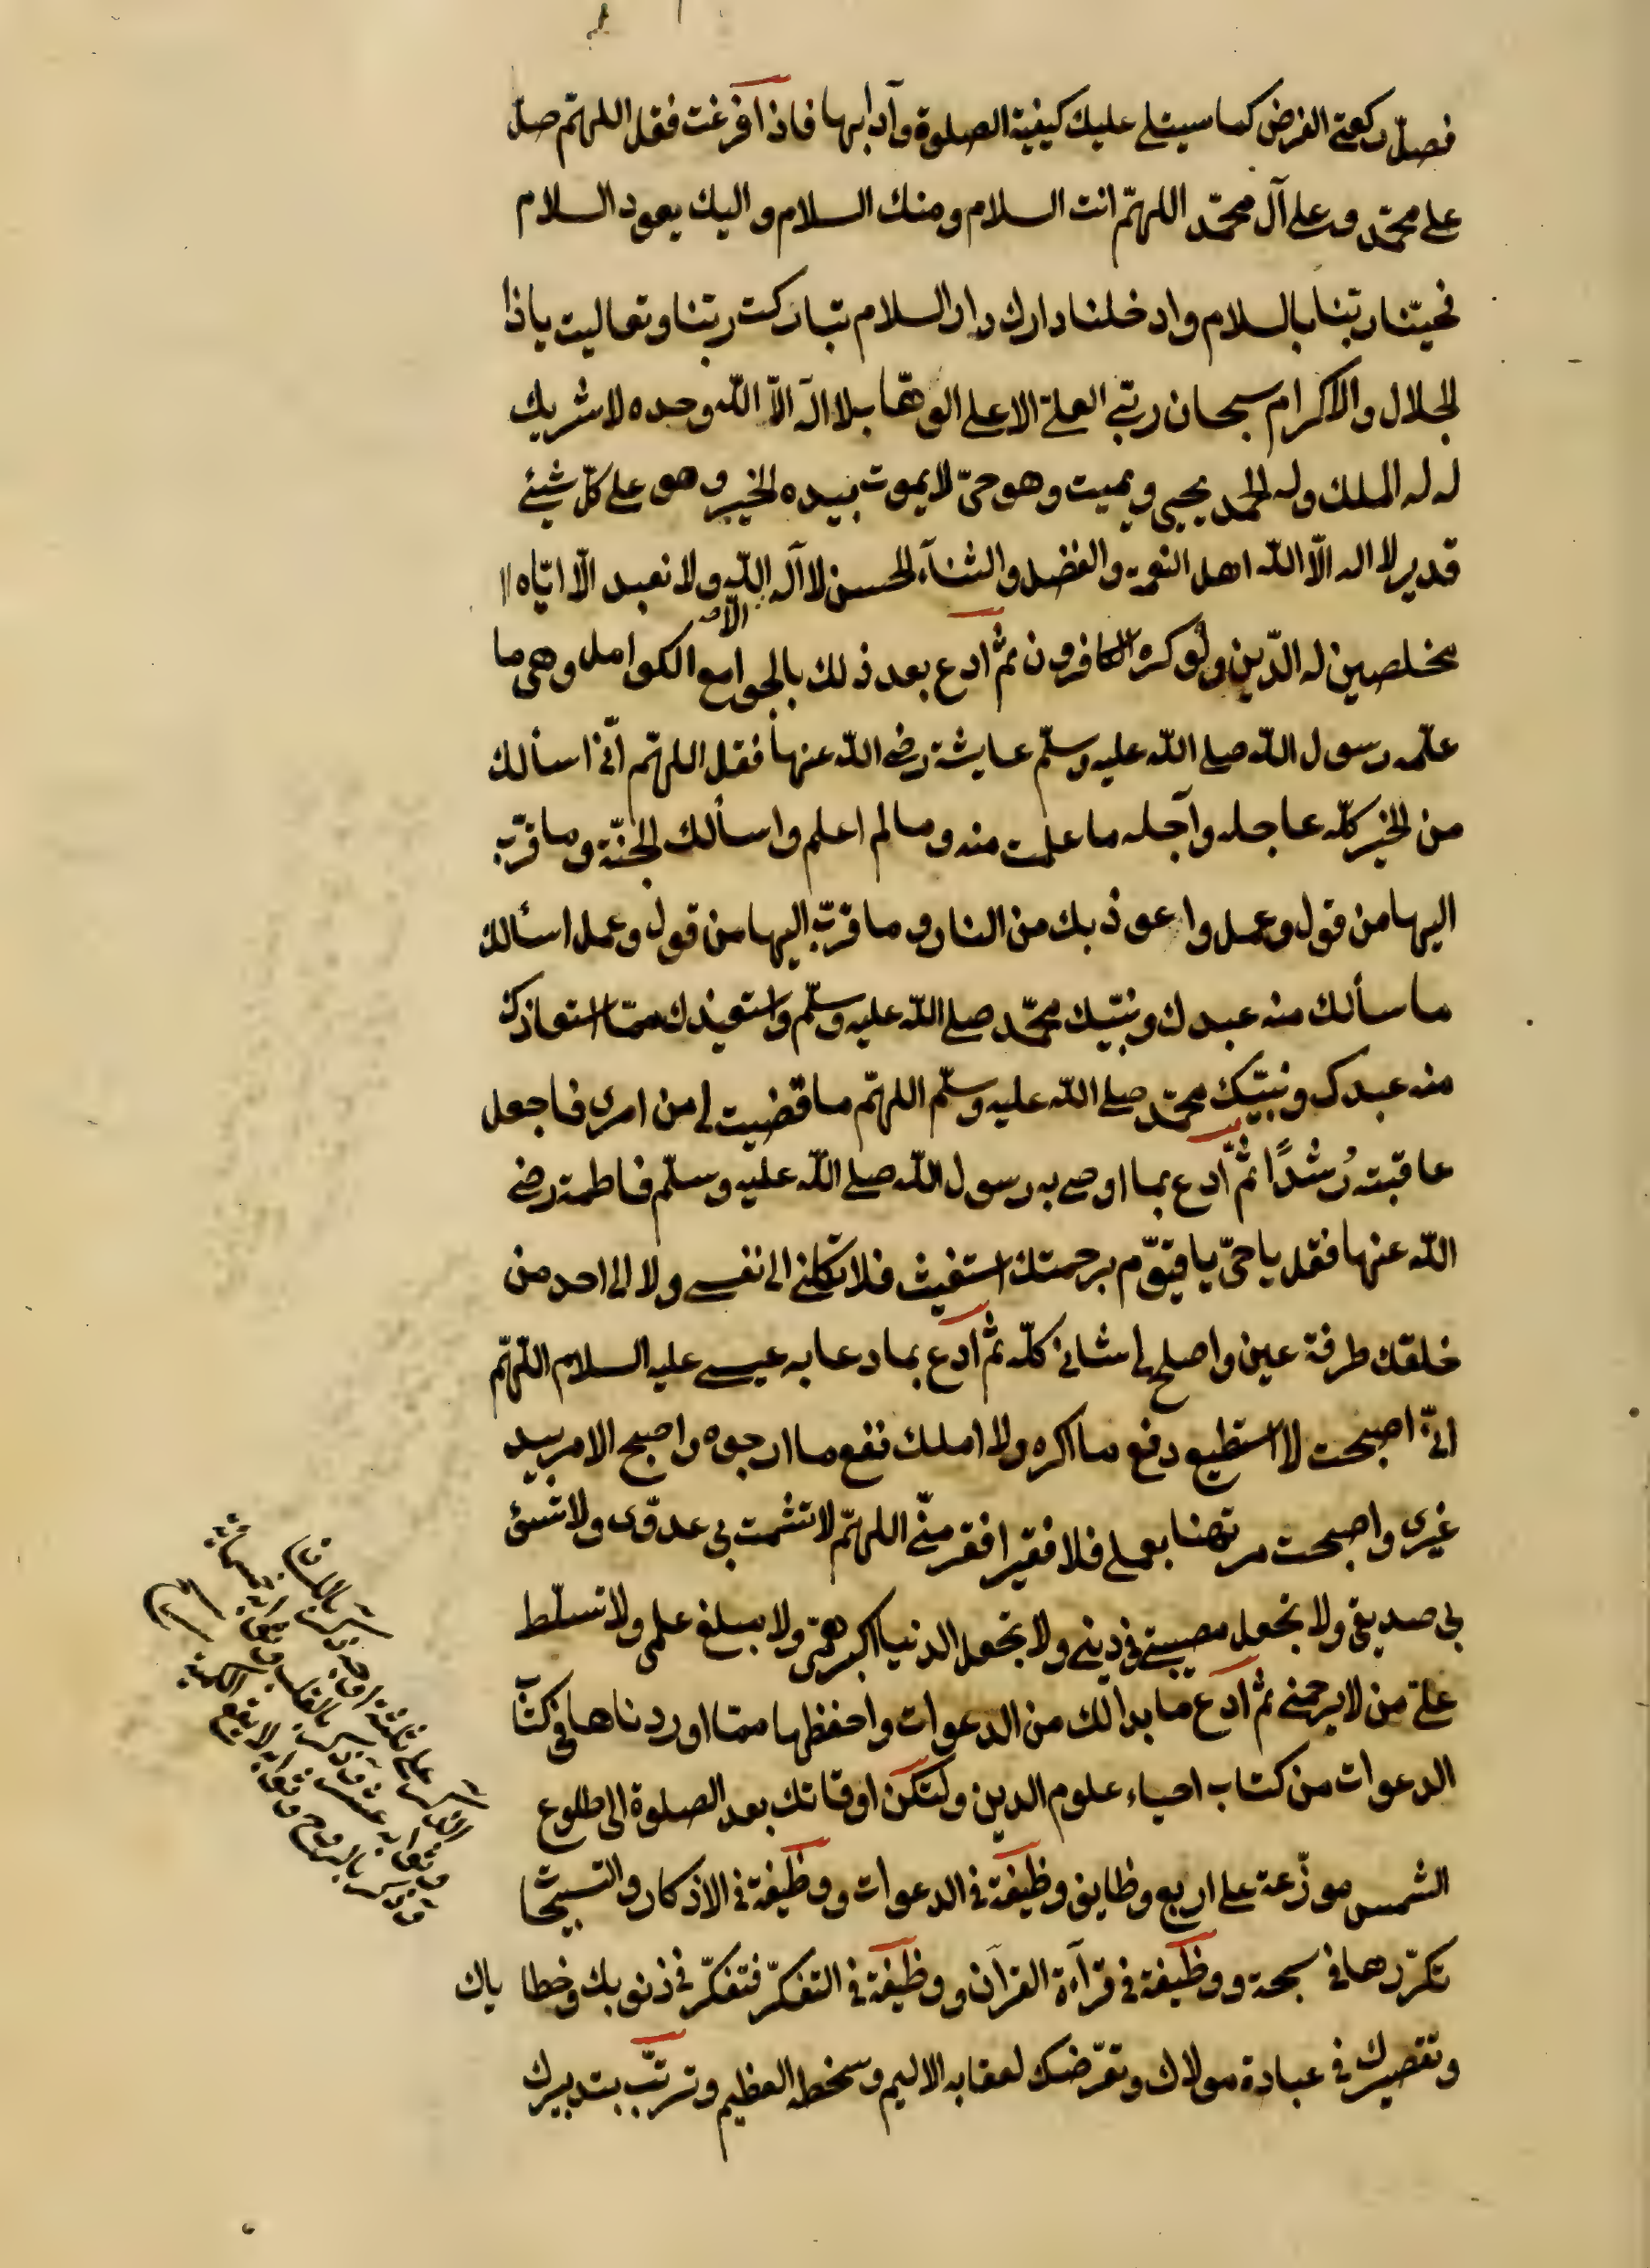 فصلّ ركعتي الفرض كما سيتلى عليك كيفية الصلوة وآدابها فاذا فرغت فقل اللهمّ صلّ
على محمّد وعلى آل محمّد اللهمّ انت السلام ومنك السلام واليك يعود السلام
فحيّنا ربّنا بالسلام وادخلنا دارك دار السلام تباركت ربّنا وتعاليت ياذا
الجلال والاكرام سبحان ربّي العليّ الاعلى الوهّاب لا اله الّا اللّه وحده لا شريك
له له الملك وله الحمد يحيي ويميت وهو حيّ لا يموت بيده الخير وهو على كلّ شيئ
قدير لا اله الّا اللّه اهل النعمة والفضل والثنآء الحسن لا اله الّا اللّه ولا نعبد الّا ايّاه
مخلصين له الدّين ولو كره الكافرون ثمّ ادع بعد ذلك بالجوامع الكوامل وهي ما
علّمه رسول اللّه صلى اللّه عليه وسلّم عايشة رضى اللّه عنها فقل اللهمّ انّي اسألك
من الخير كلّه عاجله وآجله ما علمت منه وما لم اعلم واسألك الجنّة وما قرّب
اليها من قول وعمل واعوذ بك من النار وما قرّب اليها من قول وعمل اسألك
ما سألك منه عبدك ونبيّك محمّد صلى اللّه عليه وسلّم واستعيذك ممّا استعاذك
منه عبدك ونبيّك محمّد صلى اللّه عليه وسلّم اللهمّ ما قضيت لي من امر فاجعل
عاقبته رُشدًا ثمّ ادع بما اوصى به رسول اللّه صلى اللّه عليه وسلّم فاطمة رضى
اللّه عنها فقل يا حيّ يا قيّوم برحمتك استغيث فلا تكلني الى نفسي ولا الى احد من
خلقك طرفة عين واصلح لي شاني كلّه ثمّ ادع بما دعا به عيسى عليه السلام اللّهمّ
انّي اصبحت لا استطيع دفع ما اكره ولا املك نفع ما ارجوه واصبح الامر بيد
غيري واصبحت مرتهنا بعملي فلا فقير افقر منّي اللهمّ لا تشمت بي عدوّي ولا تسؤ
بي صديقي ولا تجعل مصيبتي في ديني ولا تجعل الدنيا اكبر همّي ولا مبلغ علمي ولا تسلّط
عليّ من لا يرحمني ثمّ ادع ما بدا لك من الدعوات واحفظها ممّا اوردناها في كتاب
الدعوات من كتاب احياء علوم الدين ولتكن اوقاتك بعد الصلوة الى طلوع
الشمس موزّعة على اربع وظايف وظيفة في الدعوات ووظيفة في الاذكار والتسبيحات
تكرّرها في سبحة ووظيفة في قرآءة القرآن ووظيفة في التفكّر فتفكّر في ذنوبك وخطاياك
وتقصيرك في عبادة مولاك وتعرّضك لعقابه الاليم وسخطه العظيم وترتّب بتدبيرك